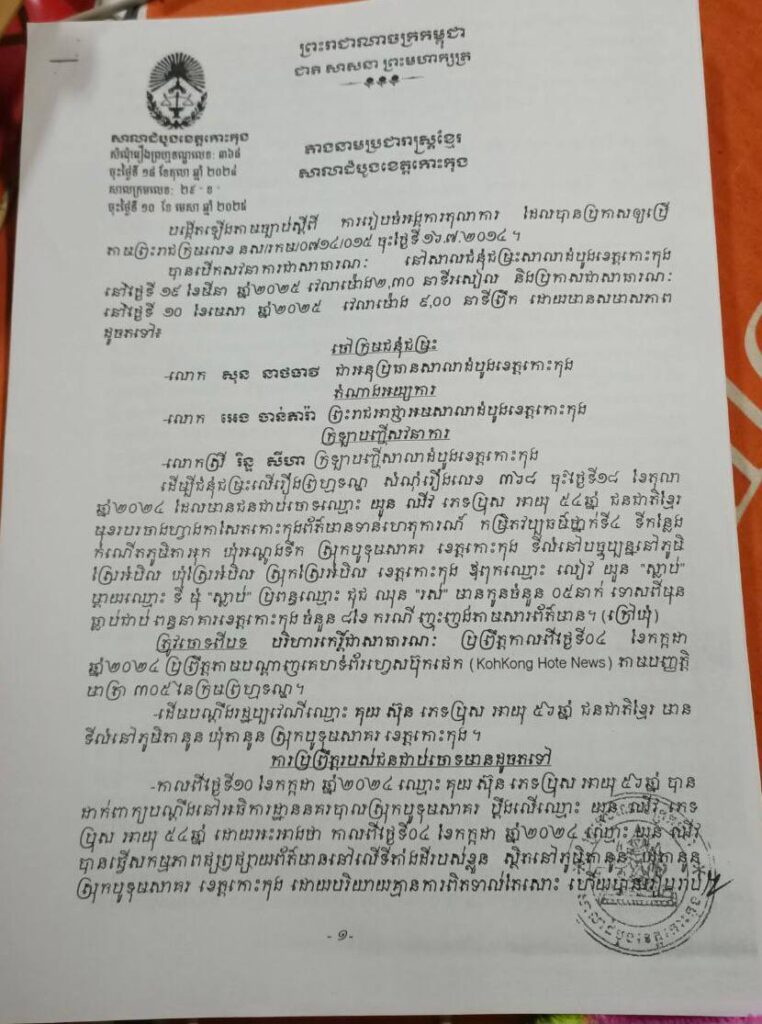 ព្រះរាជាណាចក្រកម្ពុជា
ជាតិ សាសនា ព្រះមហាក្សត្រ
សាលាដំបូងខេត្តកោះកុង
សំណុំរឿងព្រហ្មទណ្ឌលេខ: ៣៦៨
ចុះថ្ងៃទី ១៨ ខែតុលា ឆ្នាំ ២០២៤
សាលក្រមលេខ: ២៩ - ខ -
ចុះថ្ងៃទី ១០ ខែ មេសា ឆ្នាំ ២០២៥
តាងនាមប្រជារាស្ត្រខ្មែរ
សាលាដំបូងខេត្តកោះកុង
បង្កើតឡើងតាមច្បាប់ស្តីពី ការរៀបចំអង្គការតុលាការ ដែលបានប្រកាសឲ្យប្រើ
តាមព្រះរាជក្រមលេខ នស/រកម/០៧១៤/០១៥ ចុះថ្ងៃទី១៦.៧.២០១៤ ។
បានបើកសវនាការជាសាធារណៈ នៅសាលជំនុំជម្រះសាលាដំបូងខេត្តកោះកុង
នៅថ្ងៃទី ១៩ ខែមីនា ឆ្នាំ២០២៥ វេលាម៉ោង២,៣០ នាទីរសៀល និងប្រកាសជាសាធារណៈ
នៅថ្ងៃទី ១០ ខែមេសា ឆ្នាំ២០២៥ វេលាម៉ោង ៩,០០ នាទីព្រឹក ដោយមានសមាសភាព
ដូចតទៅ៖
ចៅក្រមជំនុំជម្រះ
-លោក សុន ជាអនុប្រធានសាលាដំបូងខេត្តកោះកុង
តំណាងអយ្យការ
-លោក អេង ចាន់តារ៉ា ព្រះរាជអាជ្ញាអមសាលាដំបូងខេត្តកោះកុង
ក្រឡាបញ្ជីសវនាការ
-លោកស្រី រិន្ទ សីហា ក្រឡាបញ្ជីសាលាដំបូងខេត្តកោះកុង
ដើម្បីជំនុំជម្រះលើរឿងព្រហ្មទណ្ឌ សំណុំរឿងលេខ ៣៦៨ ចុះថ្ងៃទី១៨ ខែតុលា
ឆ្នាំ២០២៤ ដែលមានជនជាប់ចោទឈ្មោះ យួន ឈីវ ភេទប្រុស អាយុ ៥៤ឆ្នាំ ជនជាតិខ្មែរ
មុខរបរចាងហ្វាងកាសែតកោះកុងព័ត៌មានទាន់ហេតុការណ៍ កម្រិតវប្បធម៌ថ្នាក់ទី៤ ទីកន្លែង
កំណើតភូមិតាអុក ឃុំអណ្តូងទឹក ស្រុកបូទុមសាគរ ខេត្តកោះកុង ទីលំនៅបច្ចុប្បន្ននៅភូមិ
ស្រែអំបិល ឃុំស្រែអំបិល ស្រុកស្រែអំបិល ខេត្តកោះកុង ឪពុកឈ្មោះ លៀវ យួន "ស្លាប់"
ម្តាយឈ្មោះ ទី មុំ "ស្លាប់" ប្រពន្ធឈ្មោះ ជុជ ឈុន "រស់" មានកូនចំនួន ០៥នាក់ ទោសពីមុន
ធ្លាប់ជាប់ ពន្ធនាគារខេត្តកោះកុង ចំនួន ៨ខែ ករណី ញុះញង់តាមសារព័ត៌មាន។ (ក្រៅឃុំ)
ត្រូវចោទពីបទ បរិហារកេរ្តិ៍ជាសាធារណៈ ប្រព្រឹត្តកាលពីថ្ងៃទី០៤ ខែកក្កដា
ឆ្នាំ២០២៤ ប្រព្រឹត្តតាមបណ្តាញគេហទំព័រហ្វេសប៊ុកផេក (KohKong Hote News) តាមបញ្ញត្តិ
មាត្រា ៣០៥ នៃក្រមព្រហ្មទណ្ឌ។
-ដើមបណ្តឹងរដ្ឋប្បវេណីឈ្មោះ គុយ ស៊ុន ភេទប្រុស អាយុ ៥៦ឆ្នាំ ជនជាតិខ្មែរ មាន
ទីលំនៅភូមិតានូន ឃុំតានូន ស្រុកបូទុមសាគរ ខេត្តកោះកុង ។
ការប្រព្រឹត្តរបស់ជនជាប់ចោទមានដូចតទៅ
-កាលពីថ្ងៃទី១០ ខែកក្កដា ឆ្នាំ២០២៤ ឈ្មោះ គុយ ស៊ុន ភេទប្រុស អាយុ ៥៦ឆ្នាំ បាន
ដាក់ពាក្យបណ្តឹងនៅអធិការដ្ឋាននគរបាលស្រុកបូទុមសាគរ ប្តឹងលើឈ្មោះ យួន ឈីវ ភេទ
ប្រុស អាយុ ៥៤ឆ្នាំ ដោយអះអាងថា កាលពីថ្ងៃទី០៤ ខែកក្កដា ឆ្នាំ២០២៤ ឈ្មោះ យួន ឈីវ
បានធ្វើសកម្មភាពផ្សព្វផ្សាយព័ត៌មាននៅលើទីតាំងដីរបស់ខ្លួន ស្ថិតនៅភូមិតានូន ឃុំតានូន
ស្រុកបូទុមសាគរ ខេត្តកោះកុង ដោយបរិយាយគ្មានការពិតទាល់តែសោះ ហើយបានរៀបរាប់
- ១-